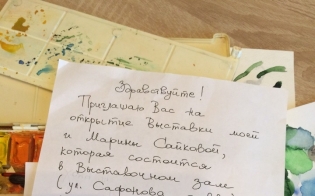 Здравствуйте!
Приглашаю Вас на
открытие Выставки моей
и Марины Сайковой,
которая состоится
в Выставочном зале
(ул. Сафонова